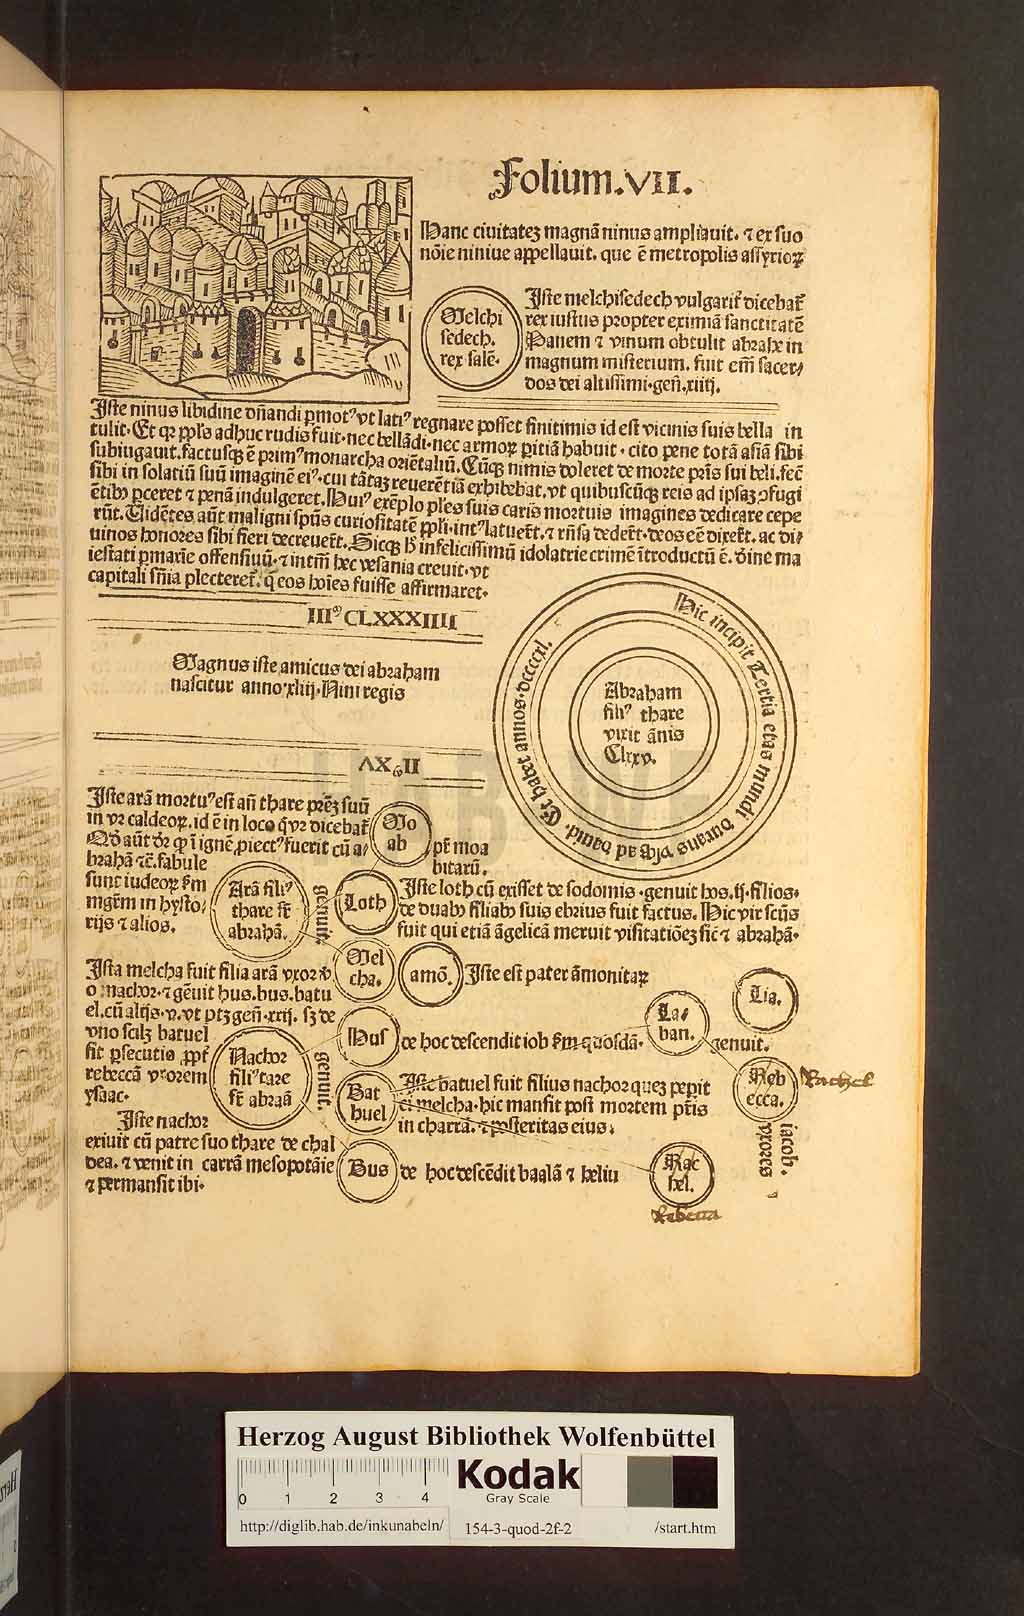 Folium.VII.
Hanc ciuitatez magnã ninus ampliauit. ⁊ ex suo
nõie niniue appellauit. que ẽ metropolis assyrioꝝ
Melchi
sedech.
rex salẽ.
Iste melchisedech vulgarit̃ dicebat̃
rex iustus propter eximiã sanctitatẽ
Panem ⁊ vinum obtulit abrahe in
magnum misterium. fuit em̃ sacer⸗
dos dei altissimi.geñ.xiiij.
Iste ninus libidine dñandi ꝑmotꝰ vt latiꝰ regnare posset finitimis id est vicinis suis bella in
tulit. Et qꝛ ppl̃s adhuc rudis fuit. nec bellãdi. nec armoꝝ ꝑitiã habuit. cito pene totã asiã sibi
subiugauit. factusqꝫ ẽ primꝰ monarcha oriẽtaliũ. Cũqꝫ nimis doleret de morte pr̃is sui beli. fecẽ
sibi in solatiũ suũ imaginẽ eiꝰ. cui tãtaz reuerẽtiã exhibebat. vt quibuscũqꝫ reis ad ipsaz ↄfugi
ẽtibꝰ ꝑceret ⁊ penã indulgeret. Huiꝰ exẽplo pl̃es suis caris mortuis imagines dedicare cepe
rũt. Uidẽtes aũt maligni spũs curiositatẽ ppl̃i. intꝰ latuer̃t. ⁊ rñsa deder̃t. deos eẽ dixer̃t. ac di⸗
uinos honores sibi fieri decreuer̃t. Sicqꝫ h̃ infelicissimũ idolatrie crimẽ ĩtroductũ ẽ. diuine ma
iestati ꝑmaxie offensiuũ. ⁊ intm̃ hec vesania creuit. vt
capitali sñia plecteret̃. q̃ eos hoĩes fuisse affirmaret.
IIIᵐ CLXXXIIII
Magnus iste amicus dei abraham
nascitur anno xliij. Nini regis
Hic incipit Tertia etas mundi durans vsqꝫ ad dauid. Et habet annos. dccccxl.
Abraham
filiꝰ thare
vixit ãnis
Clxxv.
Iste arã mortuꝰ est añ thare prẽz suũ
in vr caldeoꝝ. id ẽ in loco q̃ vr dicebat̃
Qd̃ aũt dr̃ qꝫ ĩ ignẽ ꝓiectꝰ fuerit cũ a⸗
brahã ⁊c̃. fabule
sunt iudeoꝝ s̃m
mgr̃m in hysto⸗
rijs ⁊ alios.
Mo
ab
pr̃ moa
bitarũ.
Arã filiꝰ
thare fr̃
abrahã.
genuit.
Loth
Iste loth cũ exisset de sodomis. genuit hos. ij. filios.
de duabꝰ filiabꝰ suis ebrius fuit factus. Hic vir scũs
fuit qui etiã ãgelicã meruit visitatiõez sic̃ ⁊ abrahã.
Mel
cha.
amõ.
Iste est pater ãmonitaꝝ
Ista melcha fuit filia arã vxor
o nachor. ⁊ gẽuit hus. bus. batu
el. cũ alijs. v. vt ptz geñ. xxij. sz de
vno scilz batuel
sit ꝓsecutio ꝓpt̃
rebeccã vxorem
ysaac.
Nachor
filiꝰ tare
fr̃ abraã
genuit.
Hus
de hoc descendit iob s̃m quosdã.
La⸗
ban.
genuit.
Lia.
Reb
ecca.
Rachel
iacob.
vxores
Bat
huel
Iste batuel fuit filius nachor quez pepit
ei melcha. hic mansit post mortem pr̃is
in charrã. ⁊ posteritas eius.
Iste nachor
exiuit cũ patre suo thare de chal
dea. ⁊ venit in carrã mesopotãie
⁊ permansit ibi.
Bus
de hoc descẽdit baalã ⁊ heliu
Rac
hel.
Rebecca
Herzog August Bibliothek Wolfenbüttel
0 1 2 3 4
Kodak
Gray Scale
http://diglib.hab.de/inkunabeln/ 154-3-quod-2f-2 /start.htm